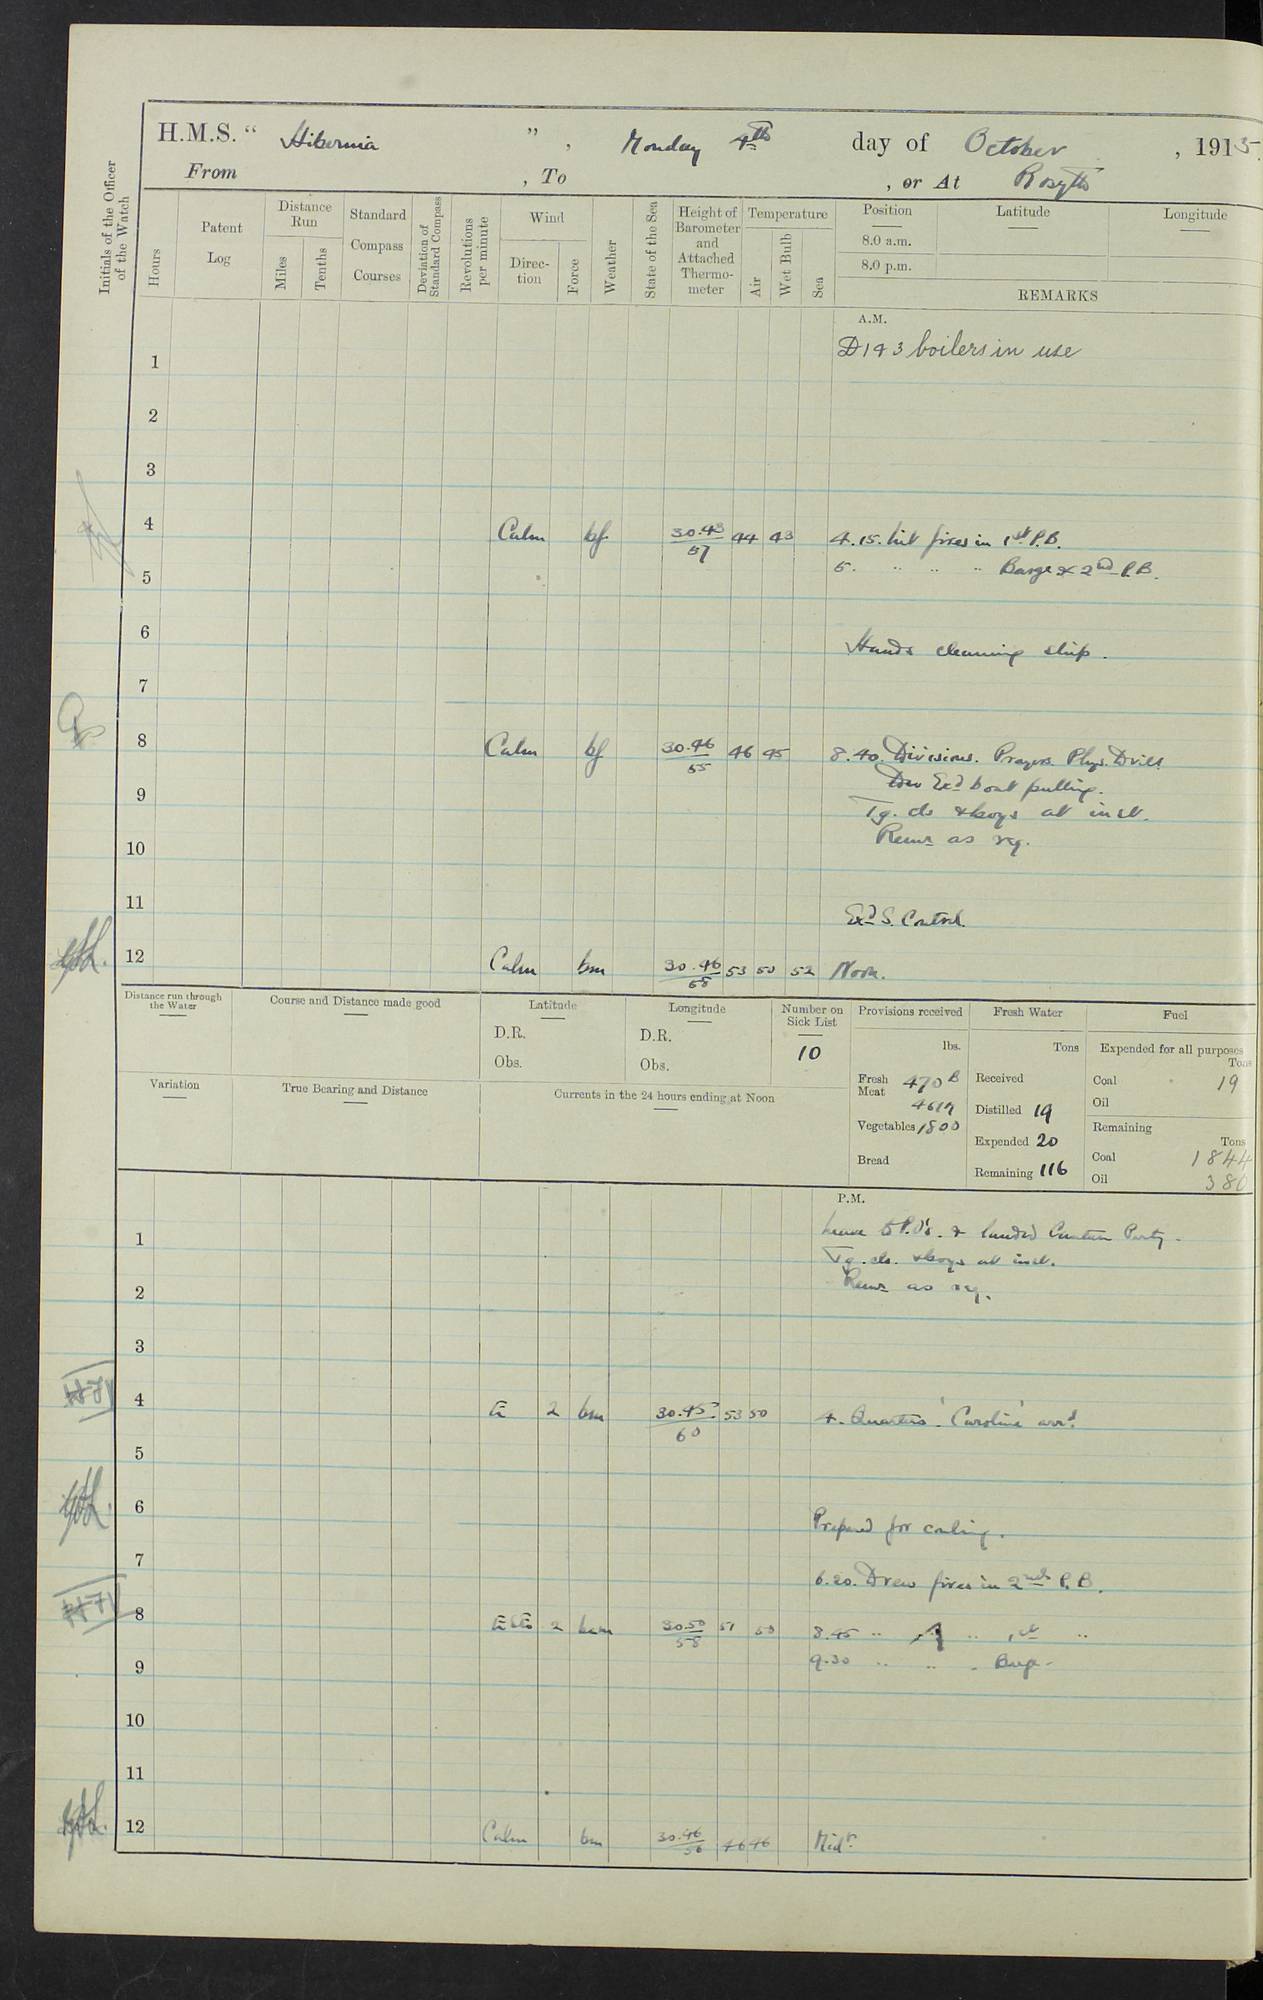 H.M.S. " Hibernia ", Monday 4th day of October, 1915.
From , To , or At Rosyth
Initials of the Officer of the Watch
Hours
Patent Log
Distance Run
Miles
Tenths
Standard Compass Courses
Deviation of Standard Compass
Revolutions per minute
Wind
Direction
Force
Weather
State of the Sea
Height of Barometer and Attached Thermometer
Temperature
Air
Wet Bulb
Sea
Position
Latitude
Longitude
8.0 a.m.
8.0 p.m.
REMARKS
A.M.
1 D 1 & 3 boilers in use
2
3
4 Calm bf 30.43/57 44 43 4.15. Lit fires in 1st P.B.
5 5. " " " Barge & 2nd P.B.
6 Hands cleaning ship.
7
8 Calm bf 30.46/55 46 45 8.40. Divisions. Prayers. Phys. Drill
Exd boat pulling.
9 Tg. cls & boys at inst.
10 Remr as req.
11 Exd S. Control.
12 Calm bm 30.46/58 53 50 52 Noon.
Distance run through the Water
Course and Distance made good
Latitude
D.R.
Obs.
Longitude
D.R.
Obs.
Number on Sick List
10
Provisions received
lbs.
Fresh Meat 470 B
Vegetables 1800
Bread
Fresh Water
Tons
Received
Distilled 19
Expended 20
Remaining 116
Fuel
Expended for all purposes
Tons
Coal 19
Oil
Remaining
Tons
Coal 1844
Oil 380
Variation
True Bearing and Distance
Currents in the 24 hours ending at Noon
P.M.
1 Leave to P.O's. & landed Canteen Party.
Tg. cls. & boys at inst.
2 Remr as req.
3
4 E 2 bm 30.45/60 53 50 4. Quarters. 'Caroline' arrd.
5
6 Prepared for coaling.
7 6.20. Drew fires in 2nd P.B.
8 2 bcm 30.50/58 51 50 8.45 " " 1st "
9 9.30 " " " Barge.
10
11
12 Calm bm 30.46/56 46 46 Midt.